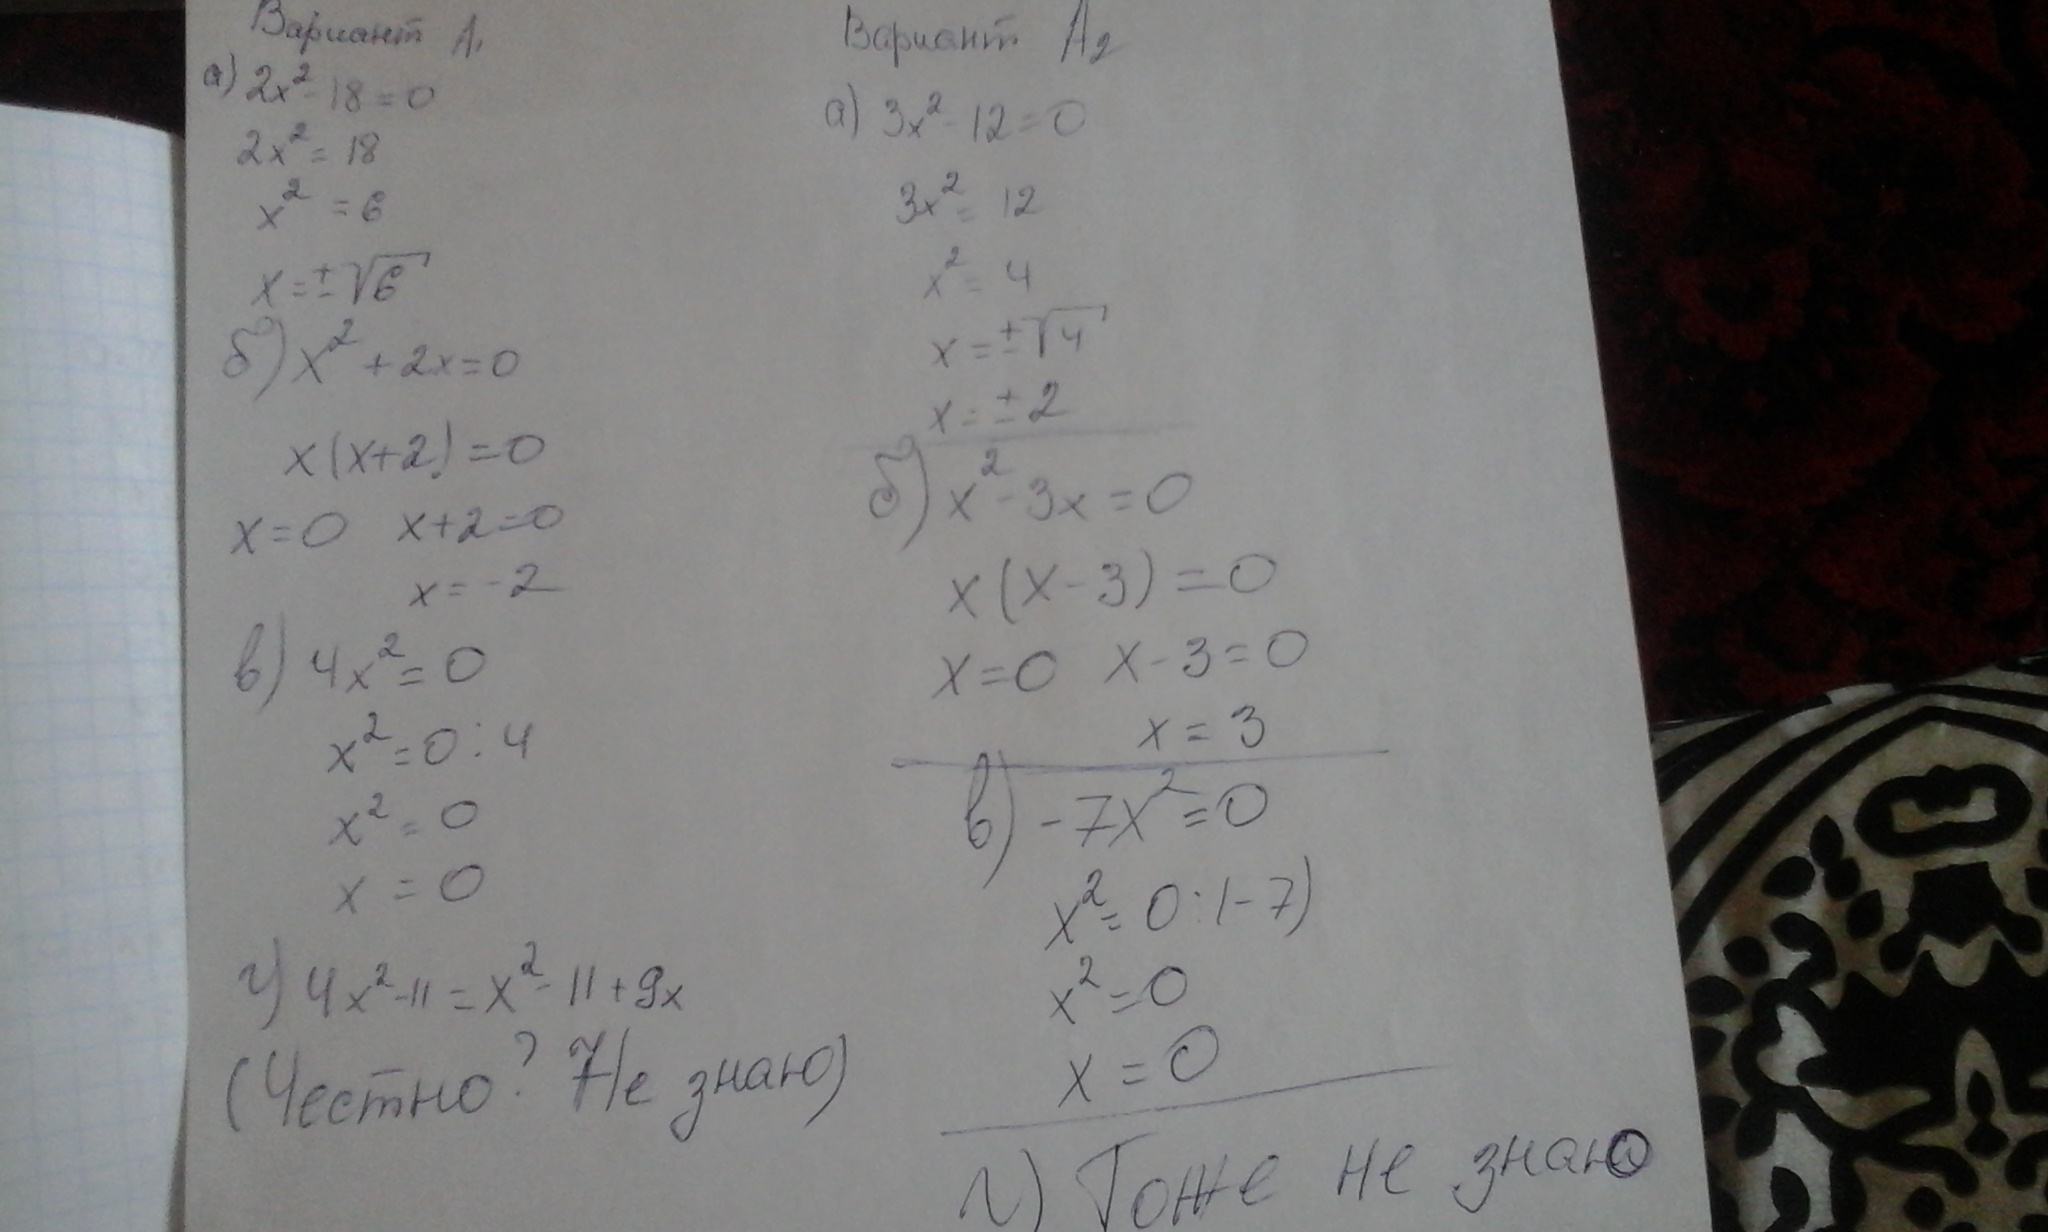 Вариант А₁
а) 2x² - 18 = 0
2x² = 18
x² = 6
x = ±√6
б) x² + 2x = 0
x(x+2) = 0
x = 0 x+2=0
x = -2
в) 4x² = 0
x² = 0 : 4
x² = 0
x = 0
г) 4x² - 11 = x² - 11 + 9x
(Честно? Не знаю)
Вариант А₂
а) 3x² - 12 = 0
3x² = 12
x² = 4
x = ±√4
x = ±2
б) x² - 3x = 0
x(x-3) = 0
x = 0 x - 3 = 0
x = 3
в) -7x² = 0
x² = 0 : (-7)
x² = 0
x = 0
г) Тоже не знаю